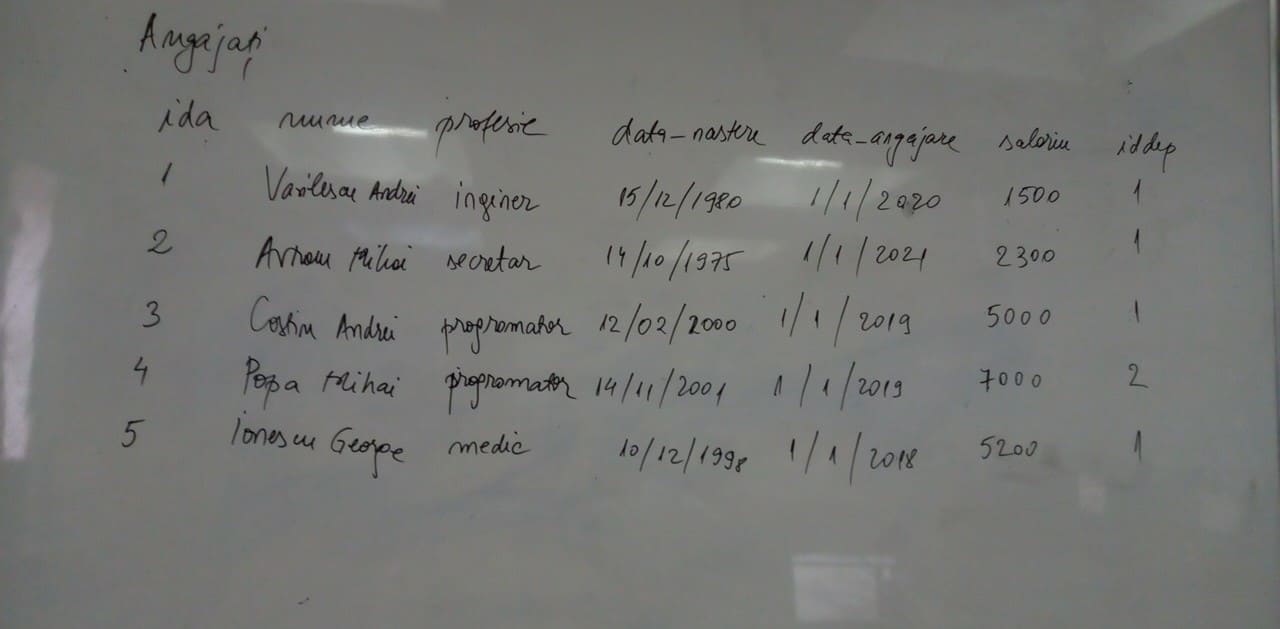 Angajați
ida nume profesie data_nastere data_angajare salariu iddep
1 Vasilescu Andrei inginer 15/12/1980 1/1/2020 1500 1
2 Avram Mihai secretar 14/10/1975 1/1/2021 2300 1
3 Costin Andrei programator 12/02/2000 1/1/2019 5000 1
4 Popa Mihai programator 14/11/2001 1/1/2019 7000 2
5 Ionescu George medic 10/12/1998 1/1/2018 5200 1